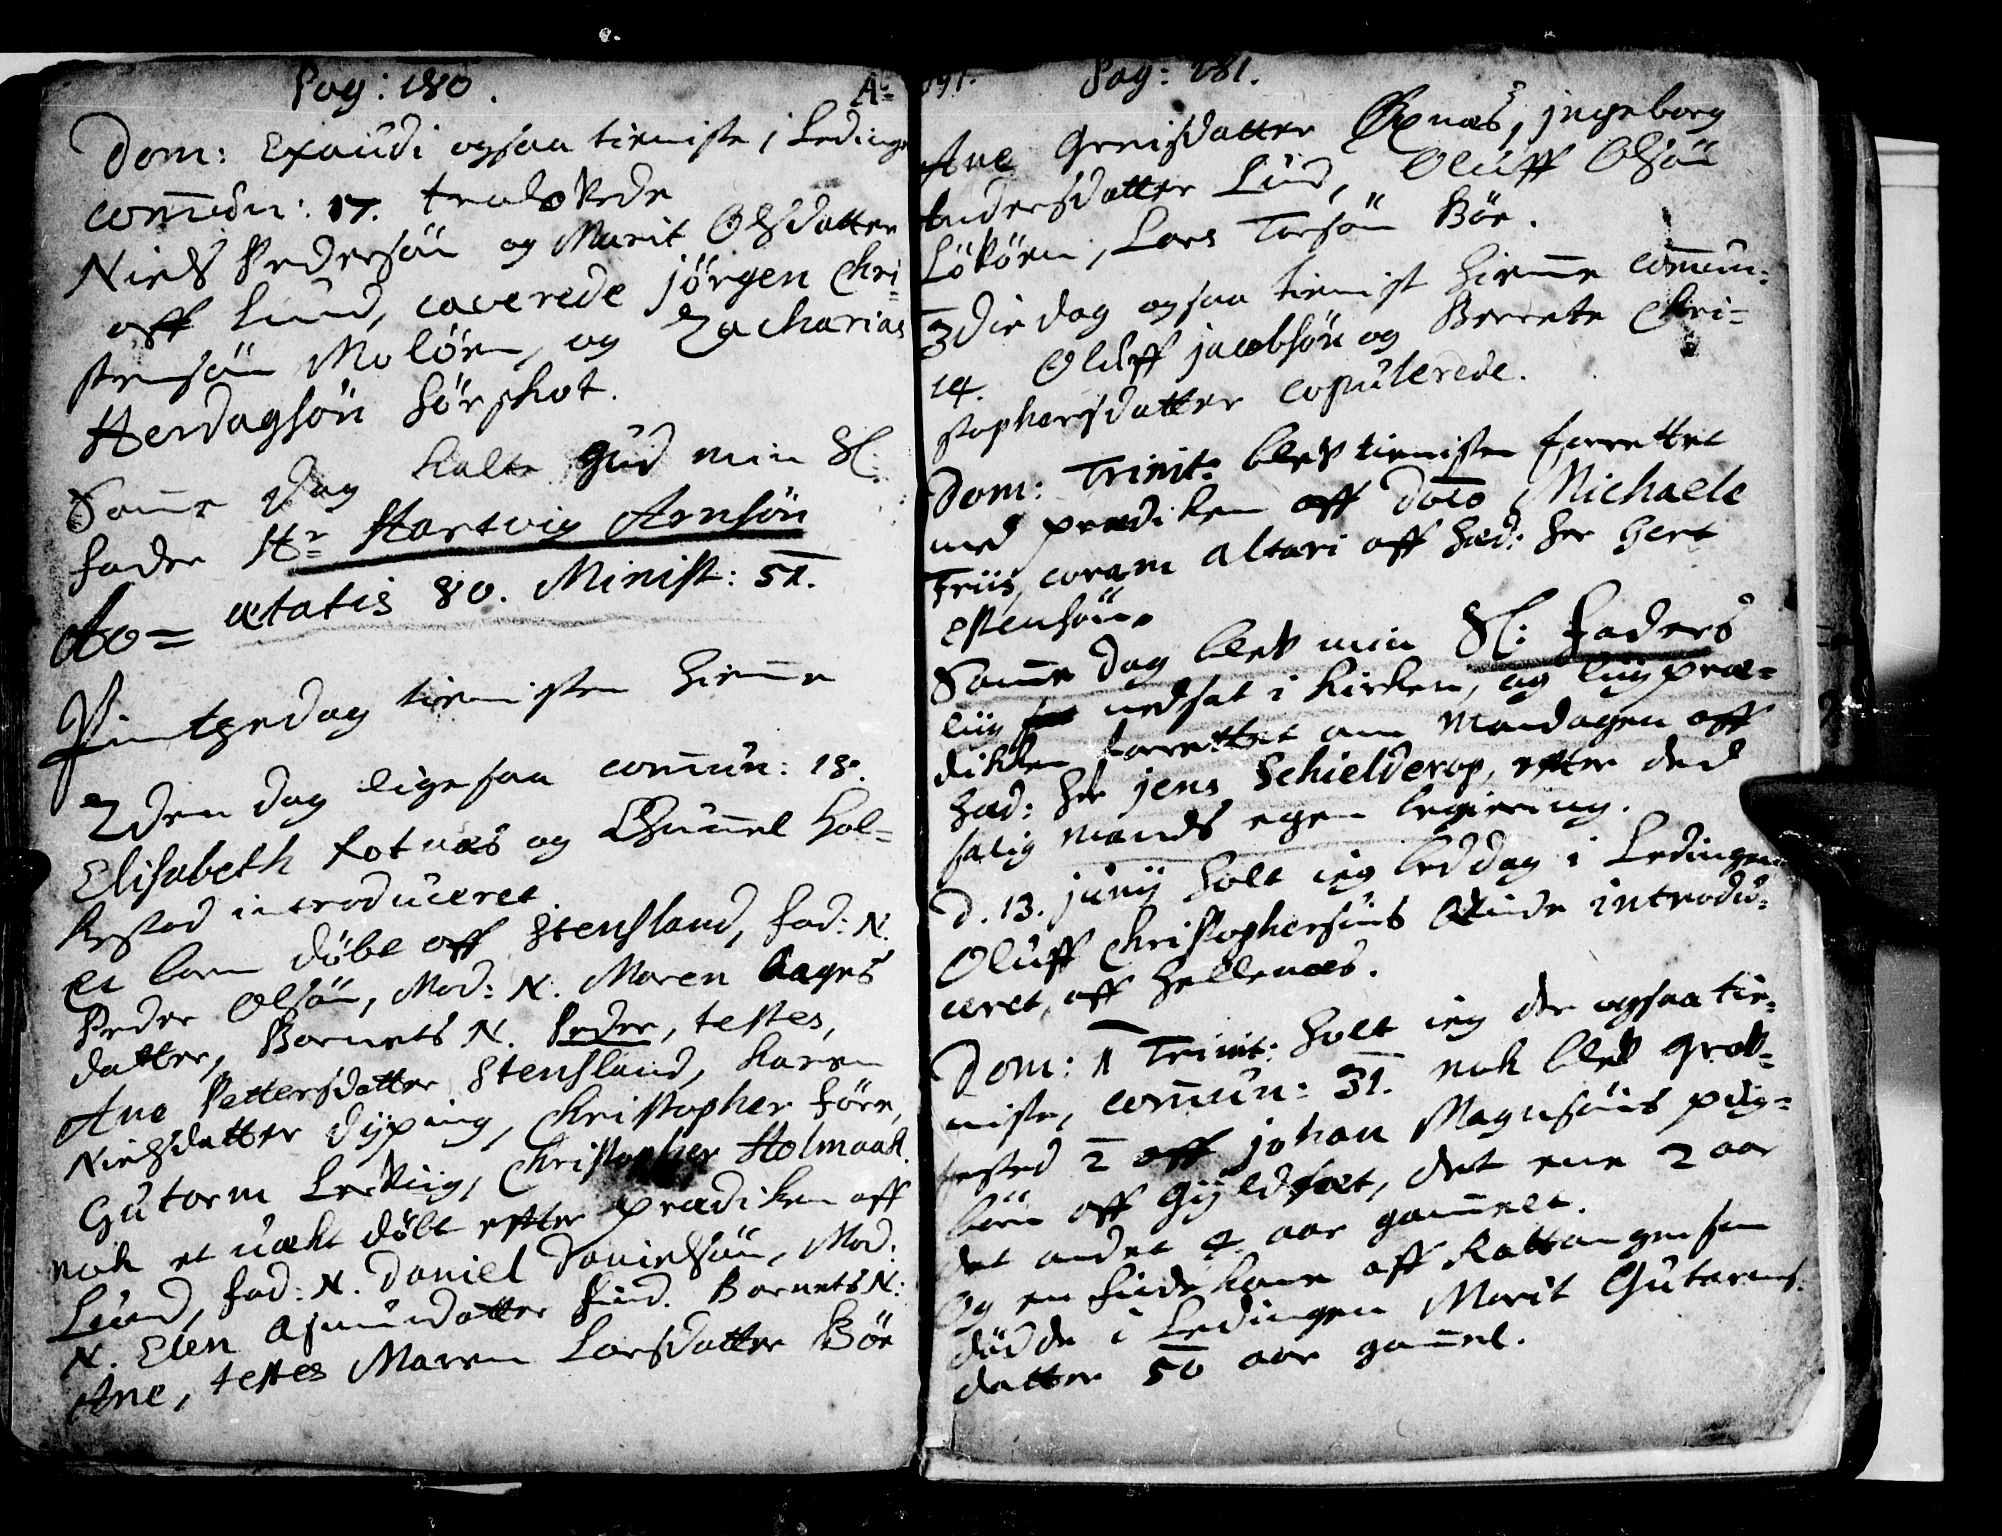 Pag: 180.
Dom: Exaudi ogsaa tieniste i Leding
com̄un: 17. trolofvede
Niels Pedersön og Marit Olsdatter
aff Lund, caverede Jörgen Chri-
stensön Molöen, og Zacharias
Herdagsön Sörskot.
Sam̄e dag kalte Gud min Sl:
fader Hr Hartvig Arnsön
Ao= ætatis 80. Minist: 51.
Pintzedag tienisten hiem̄e
2den dag ligesaa com̄un: 18.
Elisabeth Kotnæs og Gun̄el Hol-
kestad introduceret.
et barn döbt aff Stensland, fad: N.
Peder Olsön, Mod: N. Maren Aages
datter, Barnets N. Peder, testes,
Ane Pettersdatter Stensland, Karen
Nielsdatter Dyping, Christopher Före,
Gutorm Lerviig, Christopher Holmaak.
nok et uækt döbt efter prædiken aff
Lund, fad: N. Daniel Danielsön, Mod:
N. Elen Asmundatter find. Barnets N:
Ane, testes Maren Larsdatter Böe
Ao 1691. Pag: 181.
Ane Greisdatter Öxnæs, Jngeborg
Andersdatter Lund, Oluff Olsön
Lökören, Lars Torsön Böe.
3die dag ogsaa tienist hiem̄e com̄un:
14. Oluff Jacobsön og Berrete Chri-
stophersdatter copulerede.
Dom: Trinit: blef tienisten forrettet
med prædiken aff Doto Michaele
Friis, coram altari aff hæd: her Gert
Estensön.
Sam̄e dag blef min Sl: Faders
liig nedsat i kirken, og liigpræ-
diken forrettet om Mandagen aff
hæd: her Jens Schielderop, efter ded
salig mands egen begiering.
D. 13. Junij holt ieg beddag i Ledingen
Oluff Christophersöns Qvinde introdu-
ceret, aff Hellenæs.
Dom: 1 Trinit: holt ieg der ogsaa tie-
niste, com̄un: 31. nok blef graf-
fested 2 aff Johan Magnusöns pige-
börn aff Gyldfæt, det ene 2 aar
det andet 4 aar gam̄elt.
Og en finde kone aff Kattangen som
dödde i Ledingen Marit Gutorms
datter 50 aar gam̄el.